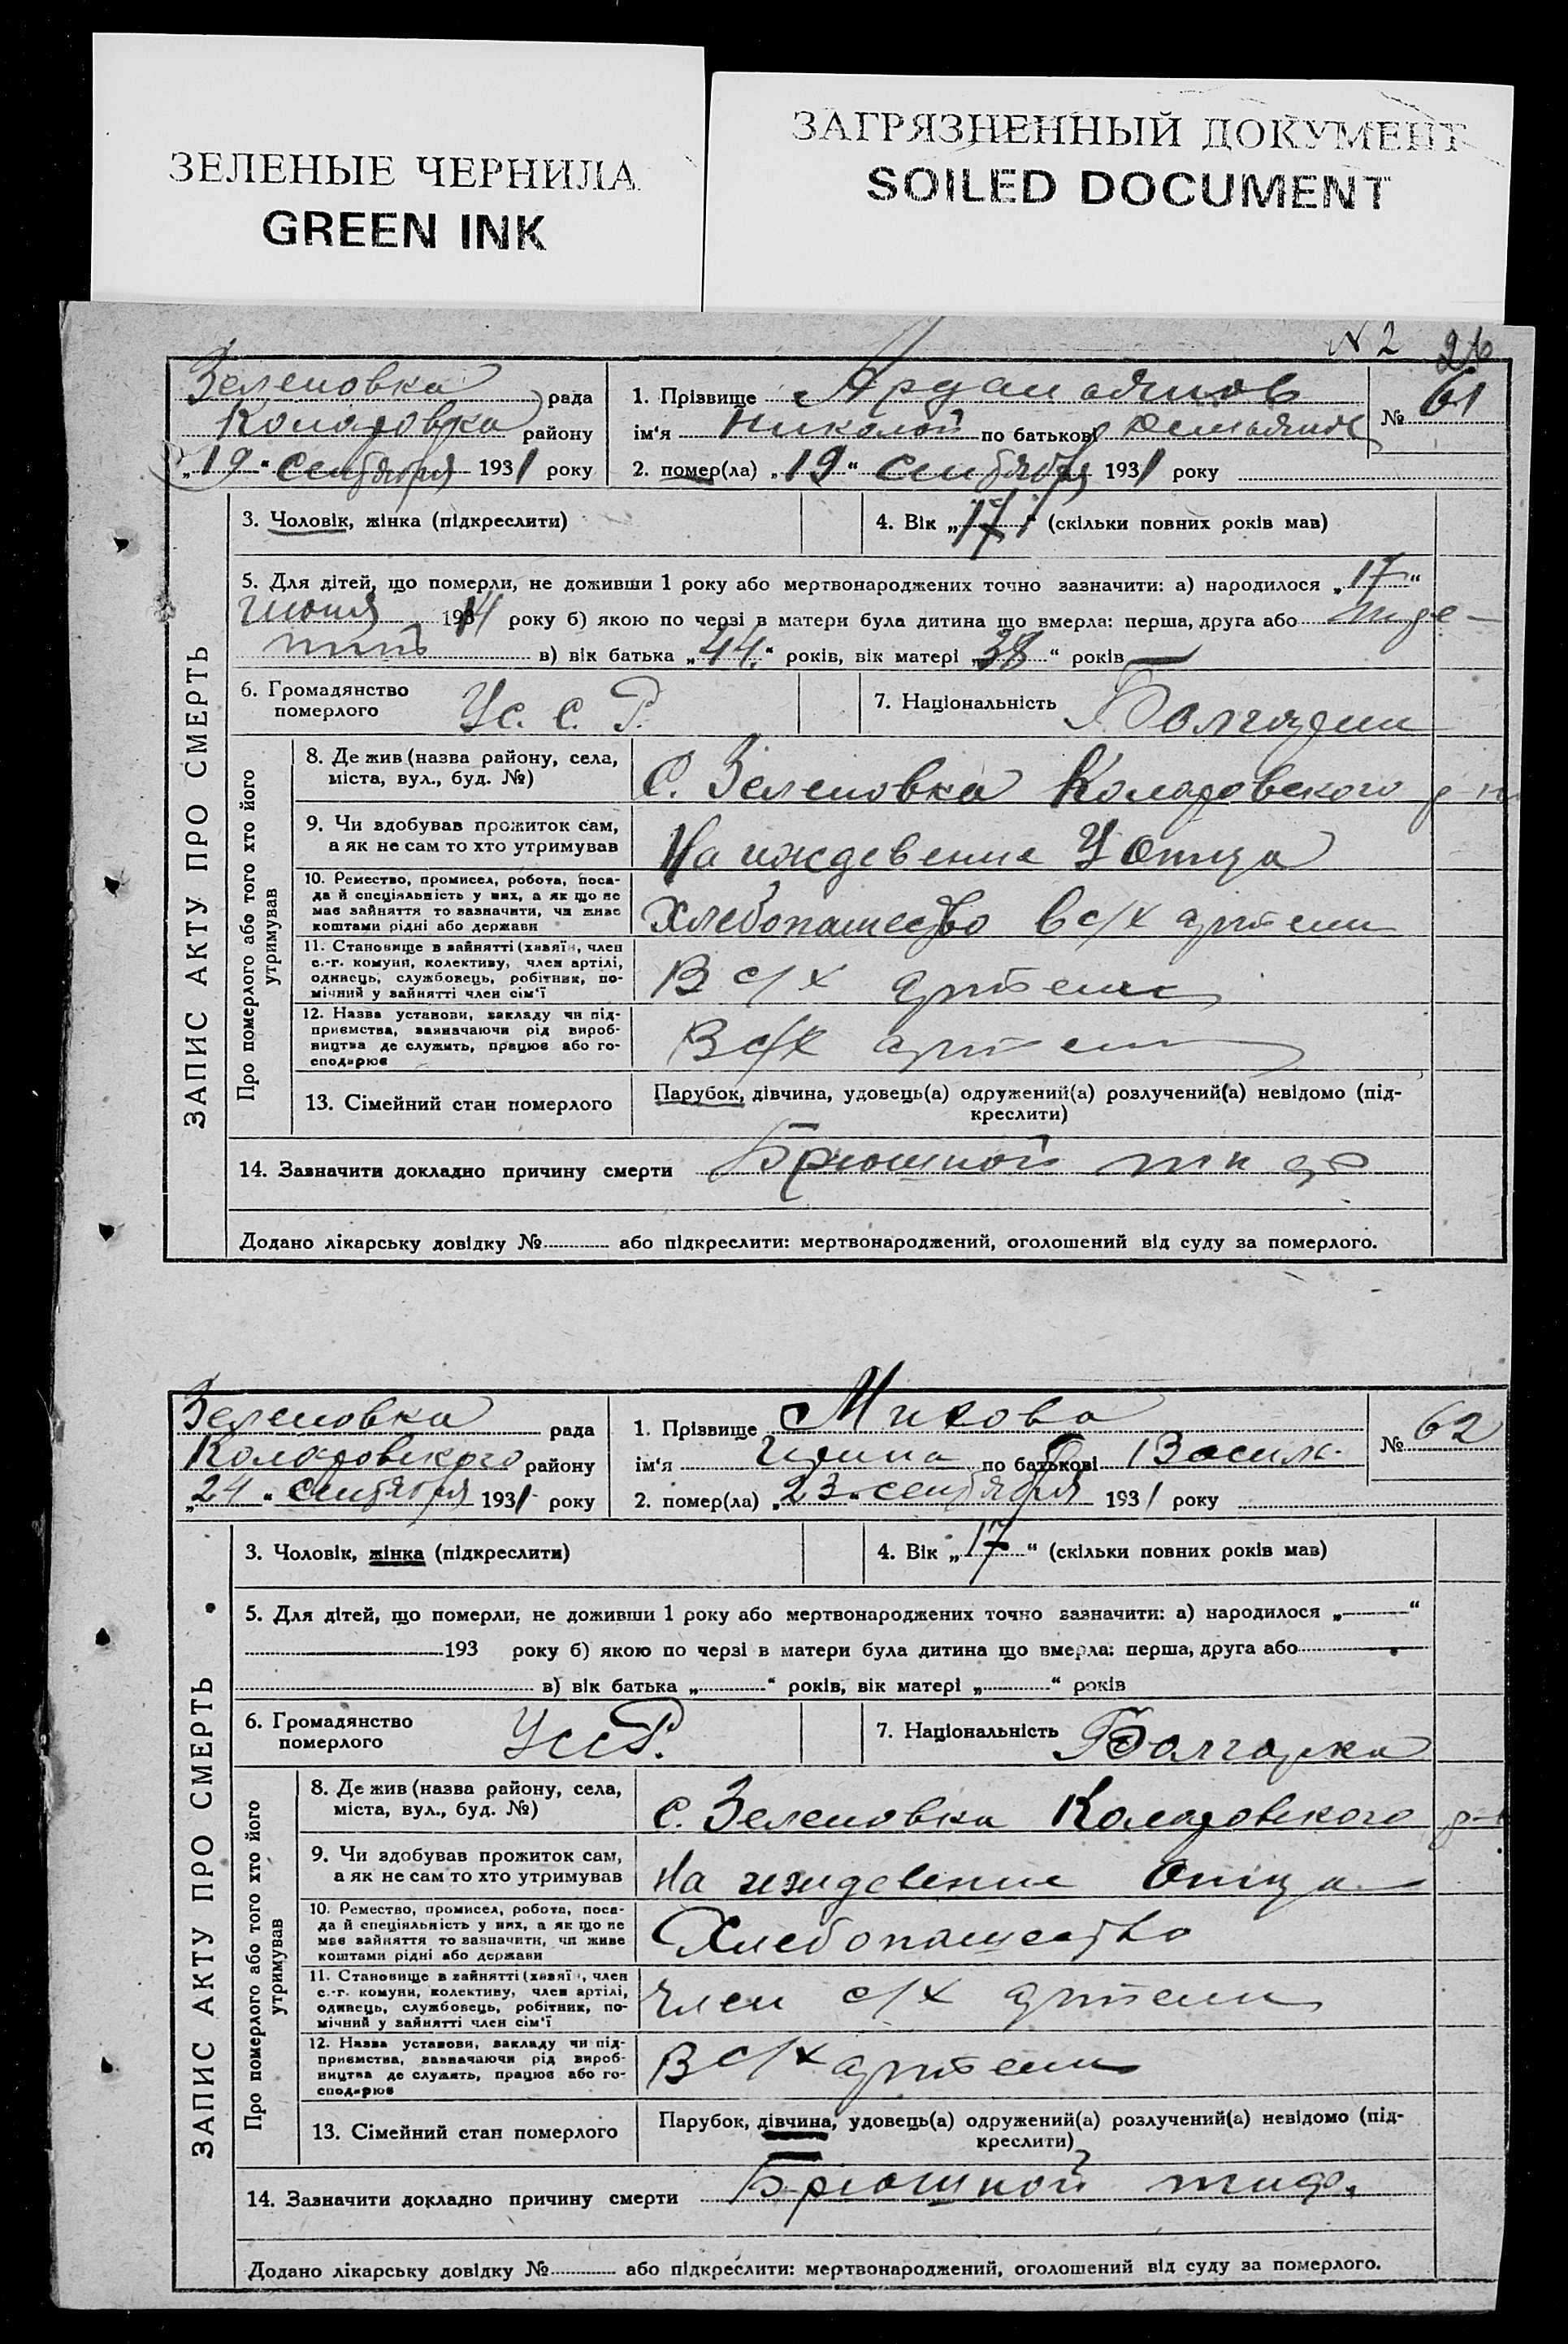 ЗЕЛЕНЫЕ ЧЕРНИЛА
GREEN INK
ЗАГРЯЗНЕННЫЙ ДОКУМЕНТ
SOILED DOCUMENT
N 2 26
ЗАПИС АКТУ ПРО СМЕРТЬ
Зеленовка рада
Коларовка району
„19“ Сентября 1931 року
1. Прізвище
ім'я Николай по батькові
2. помер(ла) „19“ Сентября 1931 року
№ 61
3. Чоловік, жінка (підкреслити)
4. Вік „17“ (скільки повних років мав)
5. Для дітей, що померли, не доживши 1 року або мертвонароджених точно зазначити: а) народилося „17“
июня 1914 року б) якою по черзі в матери була дитина що вмерла: перша, друга або
в) вік батька „44“ років, вік матері „38“ років
6. Громадянство
померлого
У.С.С.Р.
7. Національність Болгарин
Про померлого або того хто його
утримував
8. Де жив (назва району, села,
міста, вул., буд. №)
С. Зеленовка Коларовского р-на
9. Чи здобував прожиток сам,
а як не сам то хто утримував
На иждевение У Отца
10. Ремество, промисел, робота, поса-
да й спеціяльність у них, а як що не
має зайняття то зазначити, чи живе
коштами рідні або держави
Хлебопашество в с/х артели
11. Становище в зайнятті (хазяїн, член
с.-г. комуни, колективу, член артілі,
одинець, службовець, робітник, по-
мічний у зайнятті член сім'ї
В с/х артели
12. Назва установи, закладу чи під-
приємства, зазначаючи рід вироб-
ництва де служить, працює або го-
сподарює
В с/х артели
13. Сімейний стан померлого
Парубок, дівчина, удовець(а) одружений(а) розлучений(а) невідомо (під-
креслити)
14. Зазначити докладно причину смерти Брюшной тиф
Додано лікарську довідку № або підкреслити: мертвонароджений, оголошений від суду за померлого.
ЗАПИС АКТУ ПРО СМЕРТЬ
Зеленовка рада
Коларовского району
„24“ Сентября 1931 року
1. Прізвище
ім'я Ирина по батькові Васил.
2. помер(ла) „23“ сентября 1931 року
№ 62
3. Чоловік, жінка (підкреслити)
4. Вік „17“ (скільки повних років мав)
5. Для дітей, що померли, не доживши 1 року або мертвонароджених точно зазначити: а) народилося „—“
193 року б) якою по черзі в матери була дитина що вмерла: перша, друга або
в) вік батька „ “ років, вік матері „ “ років
6. Громадянство
померлого
УССР.
7. Національність Болгарка
Про померлого або того хто його
утримував
8. Де жив (назва району, села,
міста, вул., буд. №)
с. Зеленовка Коларовского р-
9. Чи здобував прожиток сам,
а як не сам то хто утримував
На иждевение Отца
10. Ремество, промисел, робота, поса-
да й спеціяльність у них, а як що не
має зайняття то зазначити, чи живе
коштами рідні або держави
Хлебопашество
11. Становище в зайнятті (хазяїн, член
с.-г. комуни, колективу, член артілі,
одинець, службовець, робітник, по-
мічний у зайнятті член сім'ї
Член с/х артели
12. Назва установи, закладу чи під-
приємства, зазначаючи рід вироб-
ництва де служить, працює або го-
сподарює
В с/х артели
13. Сімейний стан померлого
Парубок, дівчина, удовець(а) одружений(а) розлучений(а) невідомо (під-
креслити)
14. Зазначити докладно причину смерти Брюшной тиф.
Додано лікарську довідку № або підкреслити: мертвонароджений, оголошений від суду за померлого.